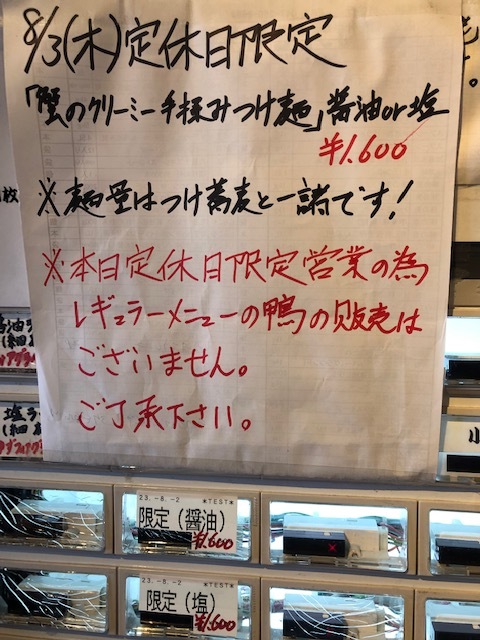 8/3(木)定休日限定
「蟹のクリーミー手揉みつけ麺」醤油or塩
¥1,600
※麺量はつけ蕎麦と一諸です!
※本日定休日限定営業の為
レギュラーメニューの鴨の販売は
ございません。
ご了承下さい。
枚
塩ラ
(細
23.-8.-2 *TEST*
限定(醤油)
¥1,600
23.-8.-2 *TEST*
限定(塩)
¥1,600